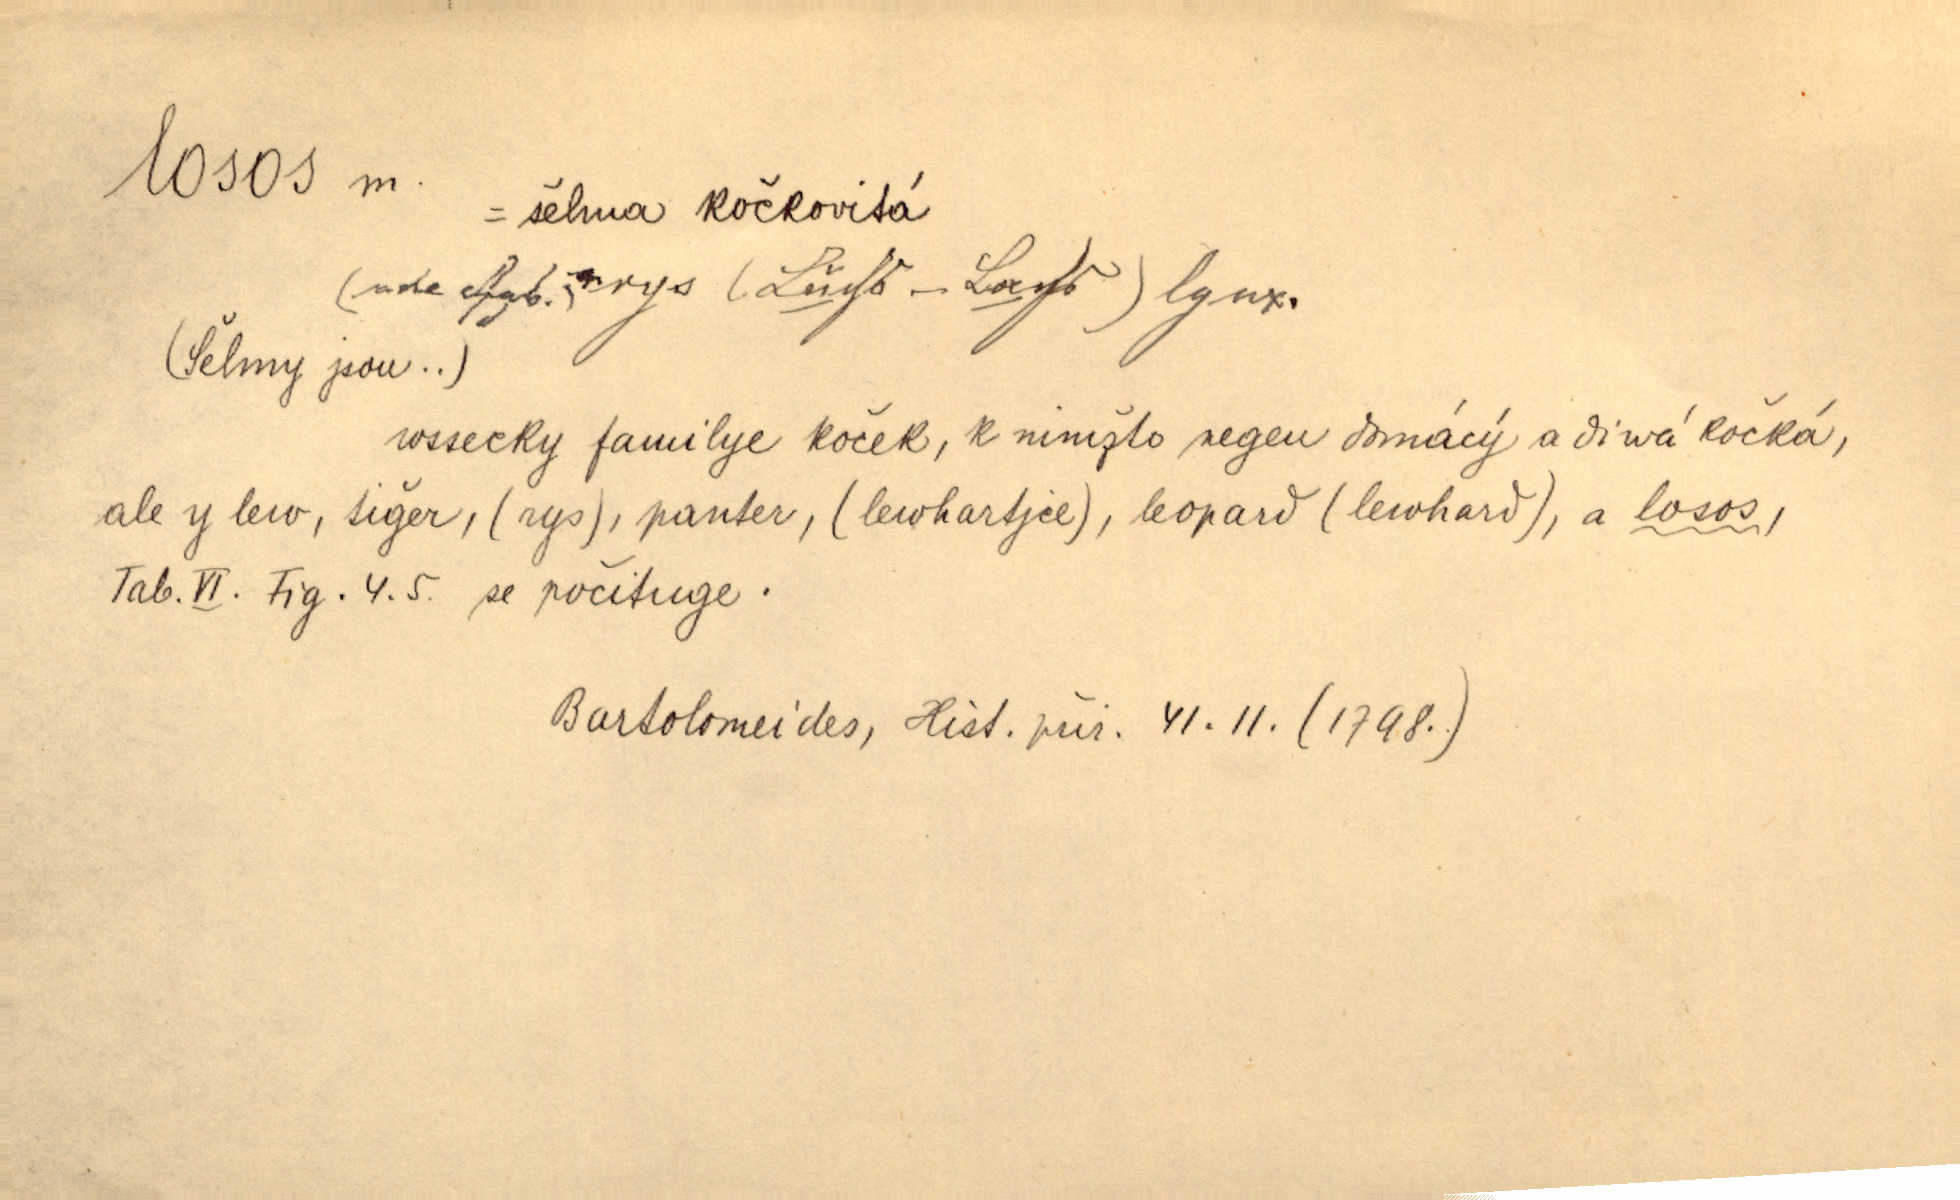 losos m.
= šelma kočkovitá
rys (Luchs – Lachs) lynx.
(Šelmy jsou..)
wssecky familye koček, k nimžto negen domácý a diwá kočká,
ale y lew, tiğer, (rys), panter, (lewhartjce), leopard (lewhard), a losos,
Tab. VI. Fig. 4. 5. se počituge.
Bartolomeides, Hist. přir. 41. 11. (1798.)